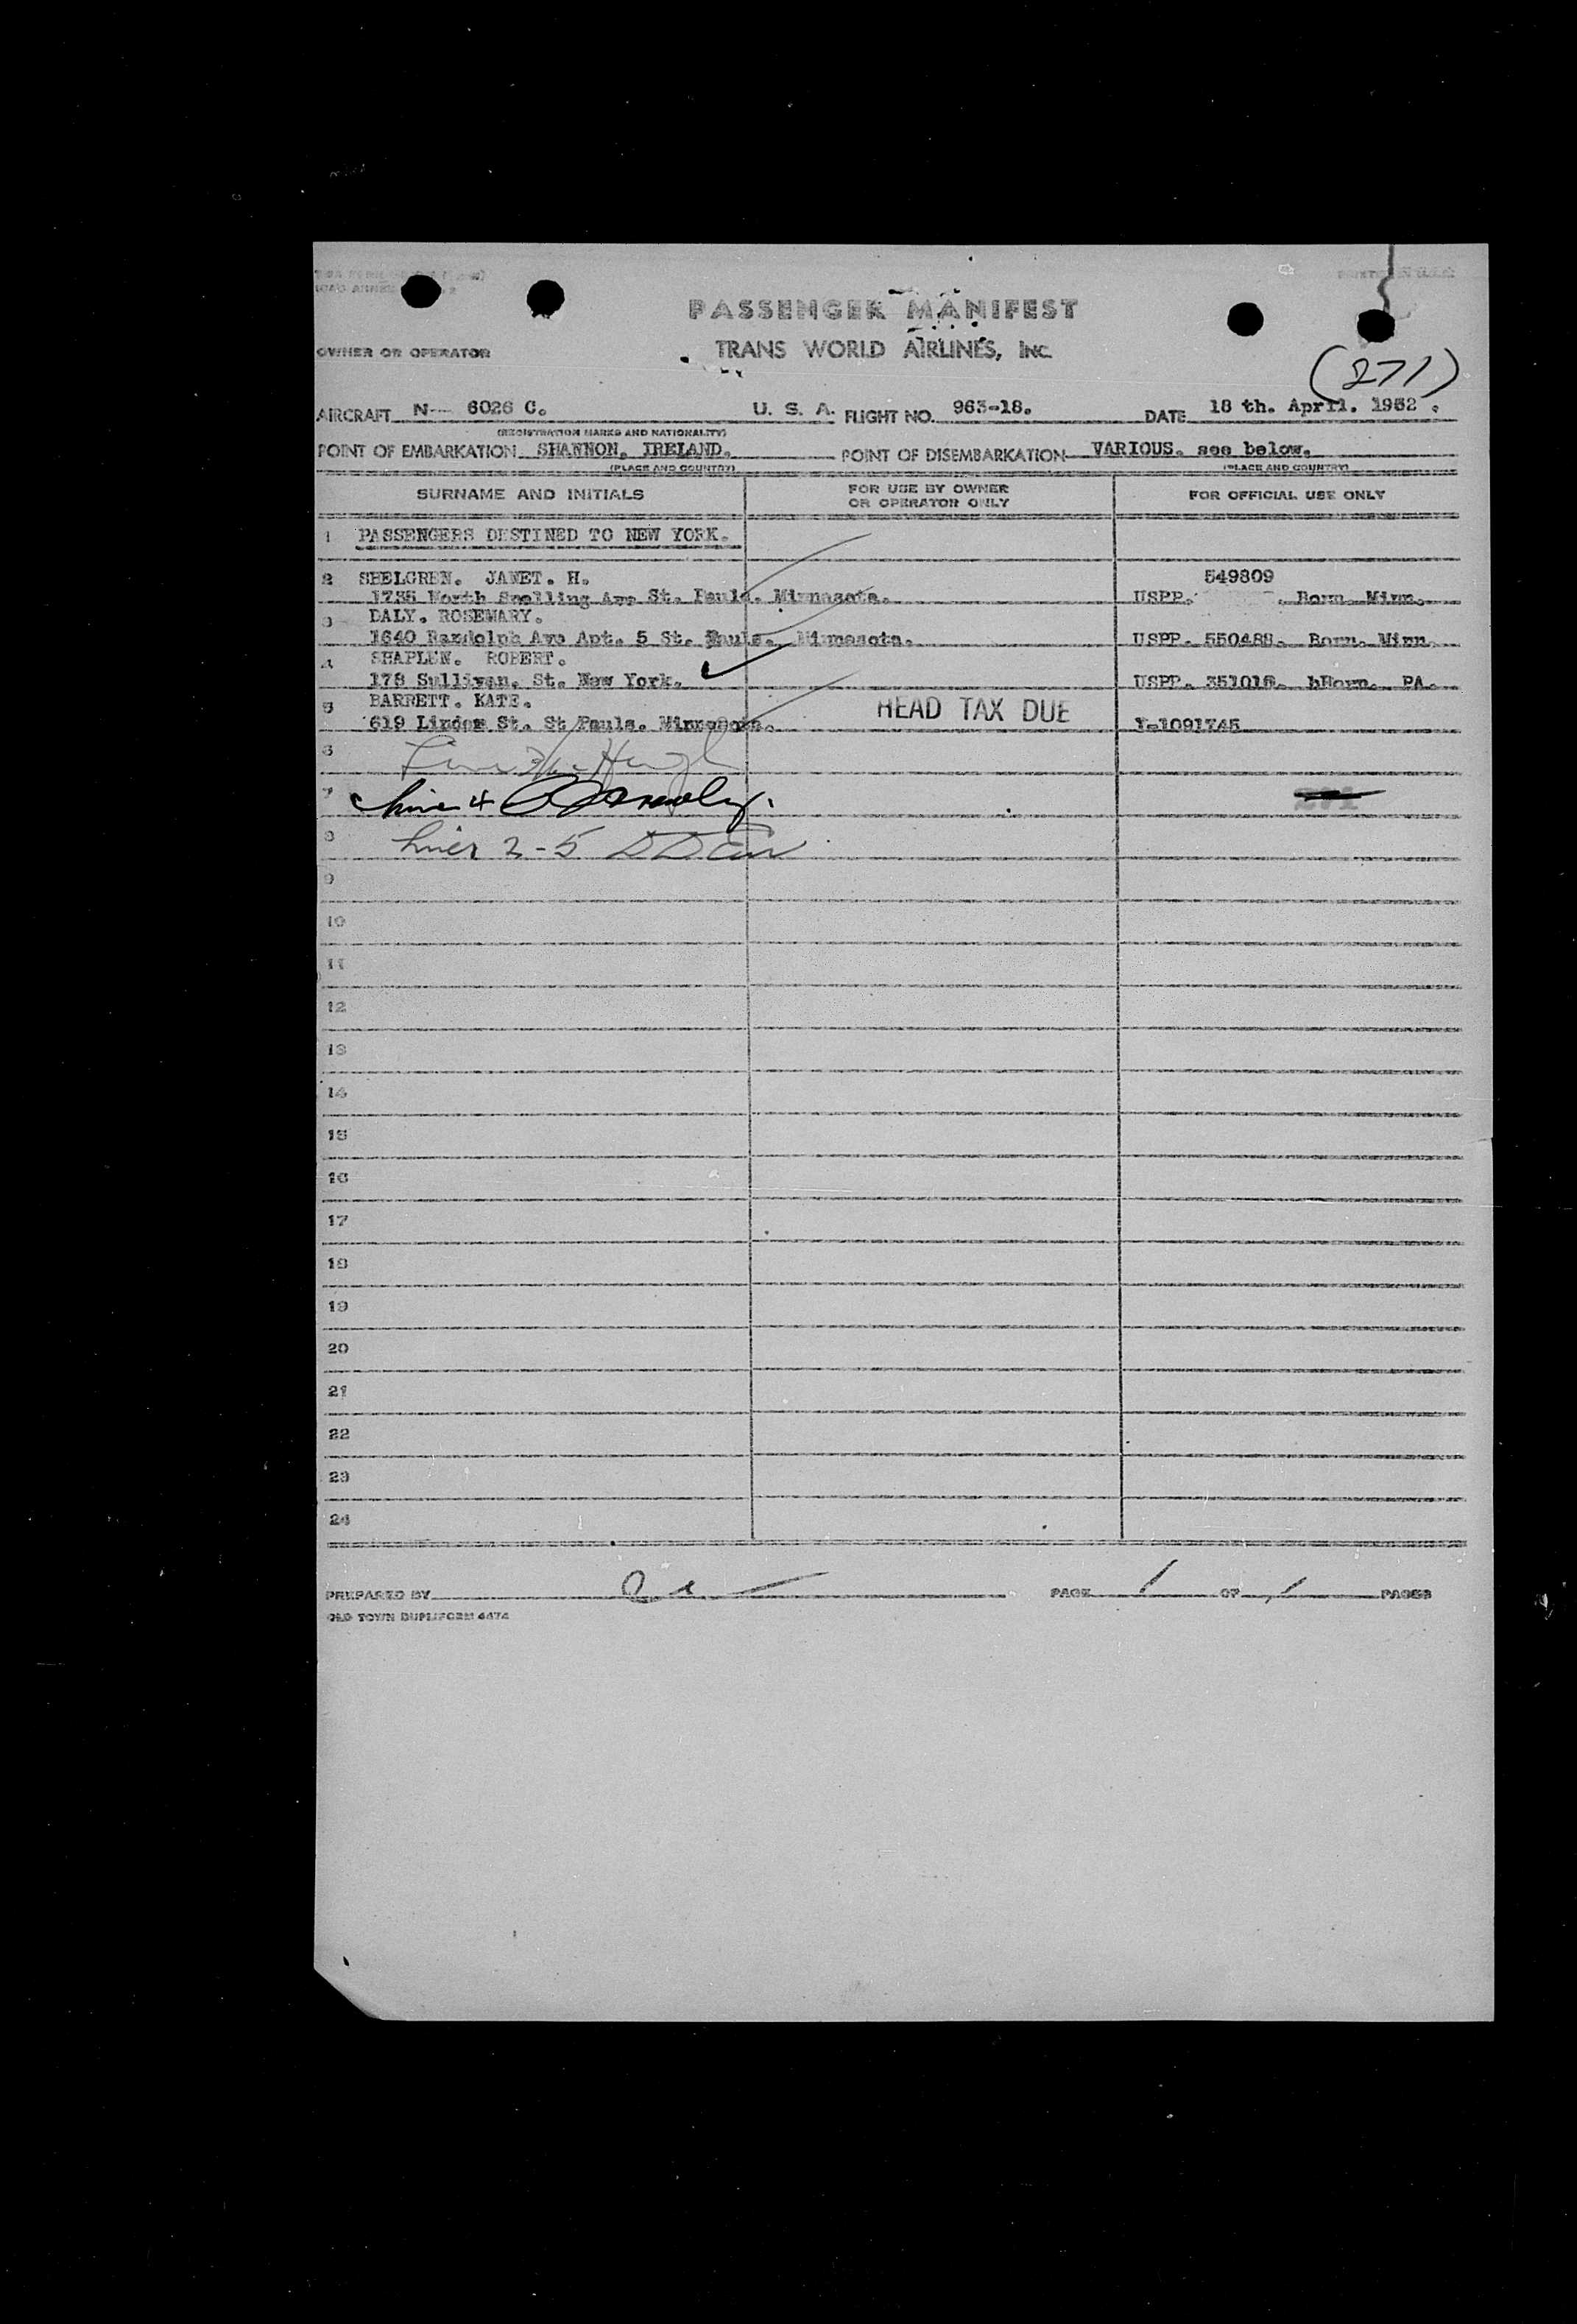 PASSENGER MANIFEST
OWNER OR OPERATOR TRANS WORLD AIRLINES, INC.
(271)
AIRCRAFT N-- 6026 C. U. S. A. FLIGHT NO. 963-18. DATE 18 th. April. 1952.
(REGISTRATION MARKS AND NATIONALITY)
POINT OF EMBARKATION SHANNON, IRELAND. POINT OF DISEMBARKATION VARIOUS. see below.
(PLACE AND COUNTRY) (PLACE AND COUNTRY)
SURNAME AND INITIALS FOR USE BY OWNER OR OPERATOR ONLY FOR OFFICIAL USE ONLY
1 PASSENGERS DESTINED TO NEW YORK.
2 SHELGREN. JANET. H. 549809
1735 North Snelling Ave St. Pauls. Minnasota. USPP. . Born. Minn.
3 DALY. ROSEMARY.
1640 Randolph Ave Apt. 5 St. Pauls. Minnesota. USPP. 550488. Born. Minn.
4 SHAPLEN. ROBERT.
178 Sullivan. St. New York. USPP. 351018. bBorn. PA.
5 BARRETT. KATE.
619 Linden St. St Pauls. Minnesota. HEAD TAX DUE I-1091745
6
7 Line 4
8 Lines 2-5
9
10
11
12
13
14
15
16
17
18
19
20
21
22
23
24
PREPARED BY PAGE 1 OF 1 PAGES
OLD TOWN DUPLIFORM 4474